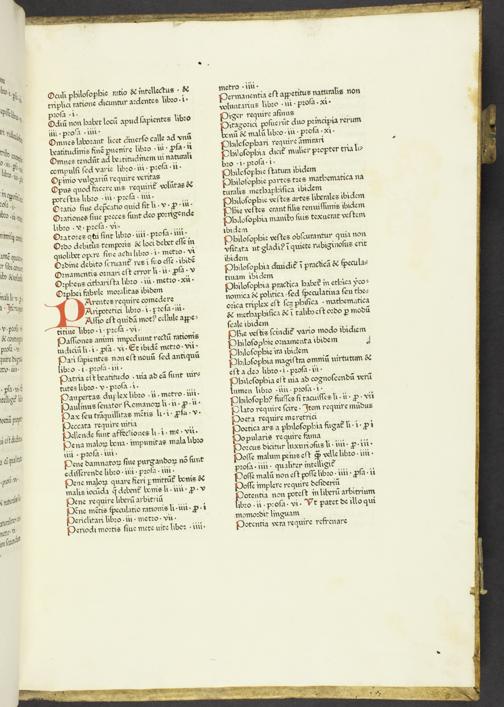 Oculi philosophie ratio & intellectus · &
triplici ratione dicuntur ardentes libro · i ·
prosa · i ·
Odiū non habet locū apud sapientes libro
iiii · prosa · iiii ·
Omnes laborant licet diuerso calle ad vnū
beatitudinis finē puenire libro · iii · ꝓsa · ii
Omnes tendūt ad beatitudinem ui naturali
compulsi sed varie libro · iii · prosa · ii ·
Opinio vulgarium require veritas
Opus quod facere uis requirit volūtas &
potestas libro · iii · prosa · iiii ·
Oratio siue depcatio quid sit li · v · ꝓ · iii ·
Orationes siue preces sunt deo porrigende
libro · v · prosa · vi ·
Oratores qui sunt libro · iiii · prosa · iiii ·
Ordo debitus temporis & loci debet esse in
quolibet opere siue actu libro · i · metro · vi
Ordinē debito seruanē res i suo esse ibidē
Ornamentis ornari est error li · ii · ꝓsa · v
Orpheus citharista libro · iii · metro · xii ·
Orphei fabule moralitas ibidem
Parentes require comedere
Paripotetici libro · i · prosa · iii ·
Passio est quidā mot⁹ cellule appe-
titiue libro · i · prosa · vi ·
Passiones animi impediunt rectū rationis
iudiciū li · i · ꝓsa · vi · Et ibidē metro · vii ·
Pati sapientes non est nouū sed antiquū
libro · i · prosa · iii ·
Patria est beatitudo · uia ad eā sunt uir-
tutes libro · v · prosa · i ·
Paupertas duplex libro · ii · metro · iiii ·
Paulinus senator Romanoꝝ li · ii · ꝓ · ii ·
Pax seu tranquillitas mētis li · i · ꝓsa · v ·
Peccata require uitia
Pellende sunt affectiones li · i · me · vii ·
Pena maloꝝ bona · impunitas mala libro
iiii · prosa · iiii ·
Pene damnatoꝝ siue purgandoꝝ nō sunt
edisserende libro · iiii · prosa · iiii ·
Pene maloꝝ quare fieri ꝑmittūt̄ bonis &
malis iocūda q̄ debent̄ bonis li · iiii · ꝓ · v
Pene require liberū arbitriū
Pene mētis speculatio rationis li · iiii · ꝓ · i
Periclitari libro · iii · metro · vii ·
Periodi mortis siue mete uite libor · iiii ·
metro · iiii ·
Permanentia est appetitus naturalis non
voluntarius libro · iii · prosa · xi ·
Piger require asinus
Pitagorici posuerūt duo principia rerum
bonū & malū libro · iii · prosa · xi ·
Philosophari require amirari
Philosophia dicit̄ mulier propter tria li-
bro · i · prosa · i ·
Philosophie statura ibidem
Philosophie partes tres mathematica na
turalis methaphisica ibidem
Philosophie vestes artes liberales ibidem
Phie vestes erant filis tenuissimis ibidem
Philosophia manib⁹ suis texuerat vestem
ibidem
Philosophie vestes obscurantur quia non
vsitata ut gladi⁹ ī quiete rubiginosus erit
ibidem
Philosophia diuidit̄ ī practicā & specula-
tiuam ibidem
Philosophia practica habet̄ in ethica yco-
nomica & politica · sed speculatiua seu the-
orica triplex est scꝫ phisica · mathematica
& methaphisica & ī talibus est ordo ꝑ modū
scale ibidem
Phie vestis scindit̄ vario modo ibidiem
Philosophie ornamenta ibidem
Philosophie ira ibidem
Philosophia magistra omniū uirtutum &
est a deo libro · i · prosa · iii ·
Philosophia est uia ad cognoscendū verū
lumen libro · iiii · prosa · i ·
Philosoph⁹ fuisses si tacuisses li · ii · ꝓ · vii
Plato require scire · Item require mūdus
Poeta require meretrici
Poetica ars a philosophia fugat̄ li · i · ꝓ i
Popularis require fama
Porcus dicitur luxuriosus li · iiii · ꝓ · iii ·
Posse malum peius est q̄ velle libro · iiii ·
prosa · iiii · qualiter intelligit̄
Posse malū non est posse libro · iiii · ꝓsa · ii
Posse implere require desideriū
Potentia non potest in liberū arbitrium
libro · ii · prosa · vi · Vt patet de illo qui
momordit linguam
Potentia vera require refrenare